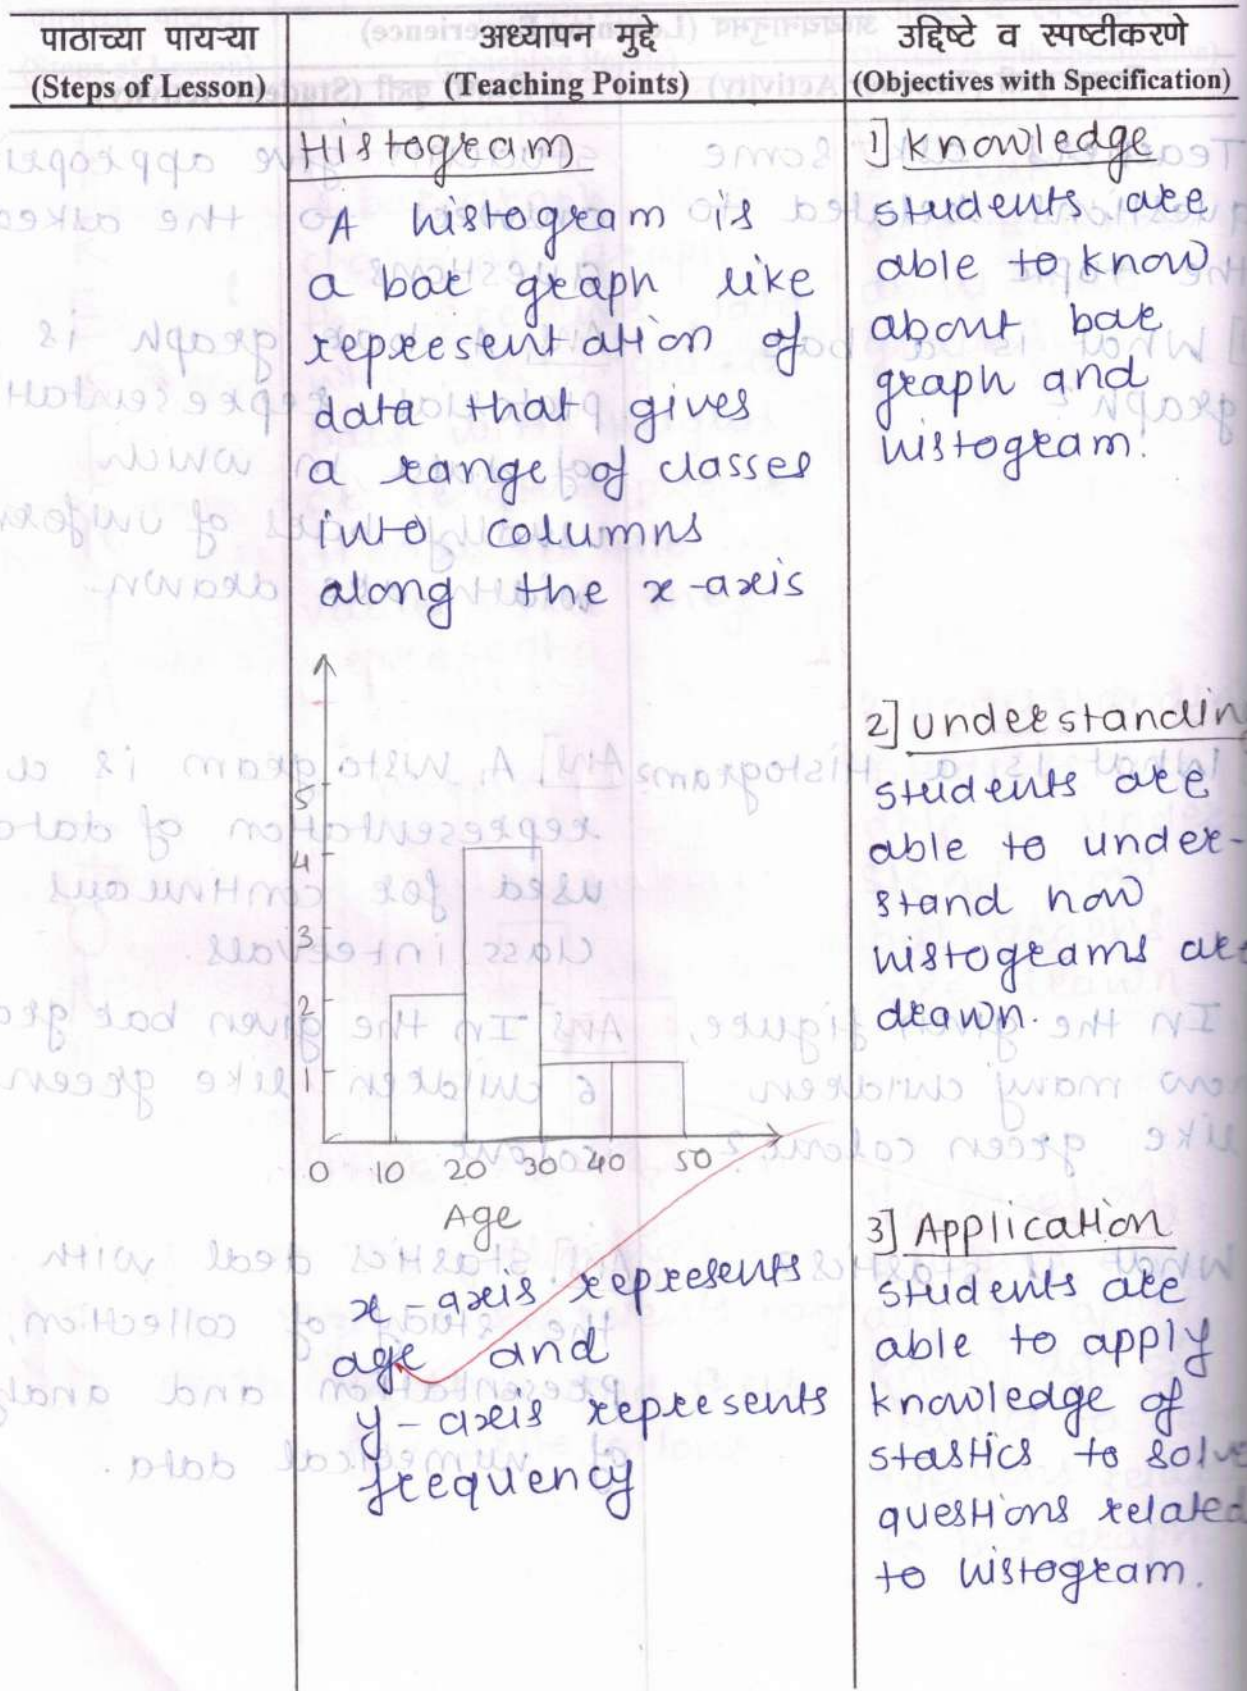 पाठाच्या पायऱ्या
(Steps of Lesson)
अध्यापन मुद्दे
(Teaching Points)
उद्दिष्टे व स्पष्टीकरणे
(Objectives with Specification)
Histogram
A histogram is
a bar graph like
representation of
data that gives
a range of classes
into columns
along the x-axis
5
4
3
2
1
0 10 20 30 40 50
Age
x-axis represents
age and
y-axis represents
frequency
1] Knowledge
students are
able to know
about bar
graph and
histogram.
2] Understandin
students are
able to under-
stand how
histograms are
drawn.
3] Application
students are
able to apply
knowledge of
stastics to solve
questions related
to histogram.